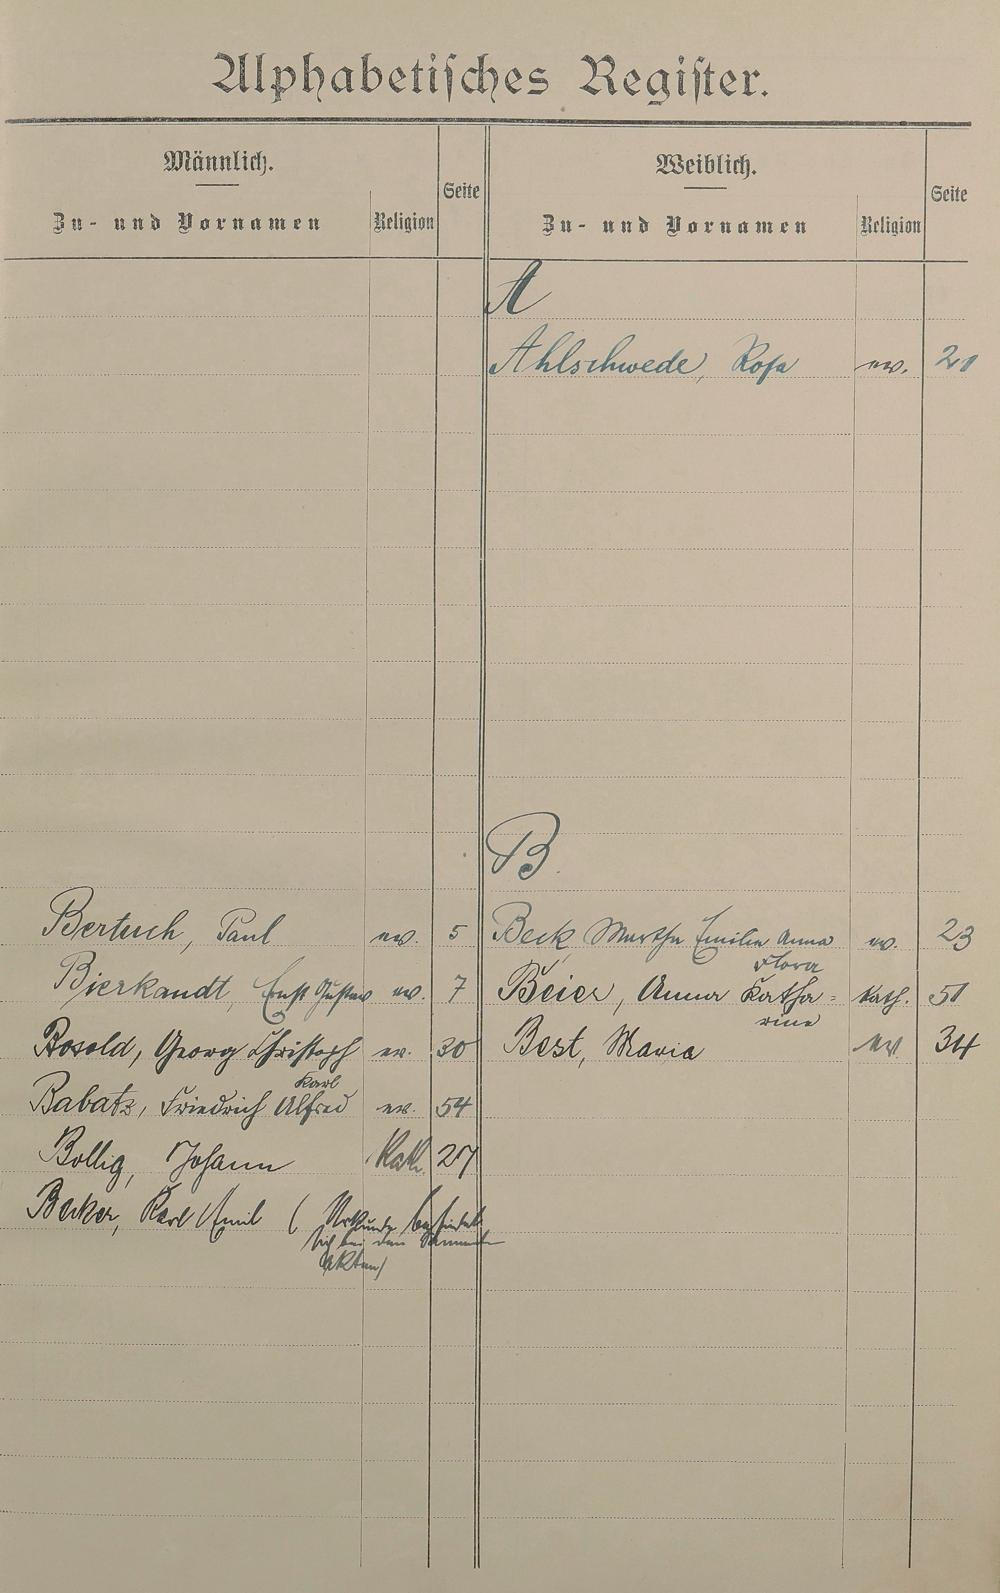 Alphabetisches Register.
Männlich.
Zu- und Vornamen
Religion
Seite
Weiblich.
Zu- und Vornamen
Religion
Seite
A
Ahlschwede, Rosa ev. 21
B
Bertuch, Paul ev. 5
Beck, Martha Emilie Anna ev. 23
Flora
Bierkandt, Ernst Gustav ev. 7
Beier, Anna Katha= kath. 51
rine
Bosold, Georg Christoph ev. 30
Best, Maria ev 34
Karl
Babatz, Friedrich Alfred ev. 54
Bollig, Johann Kath. 27
Becker, Karl Emil (Urkunde befindet
sich bei den
Akten)